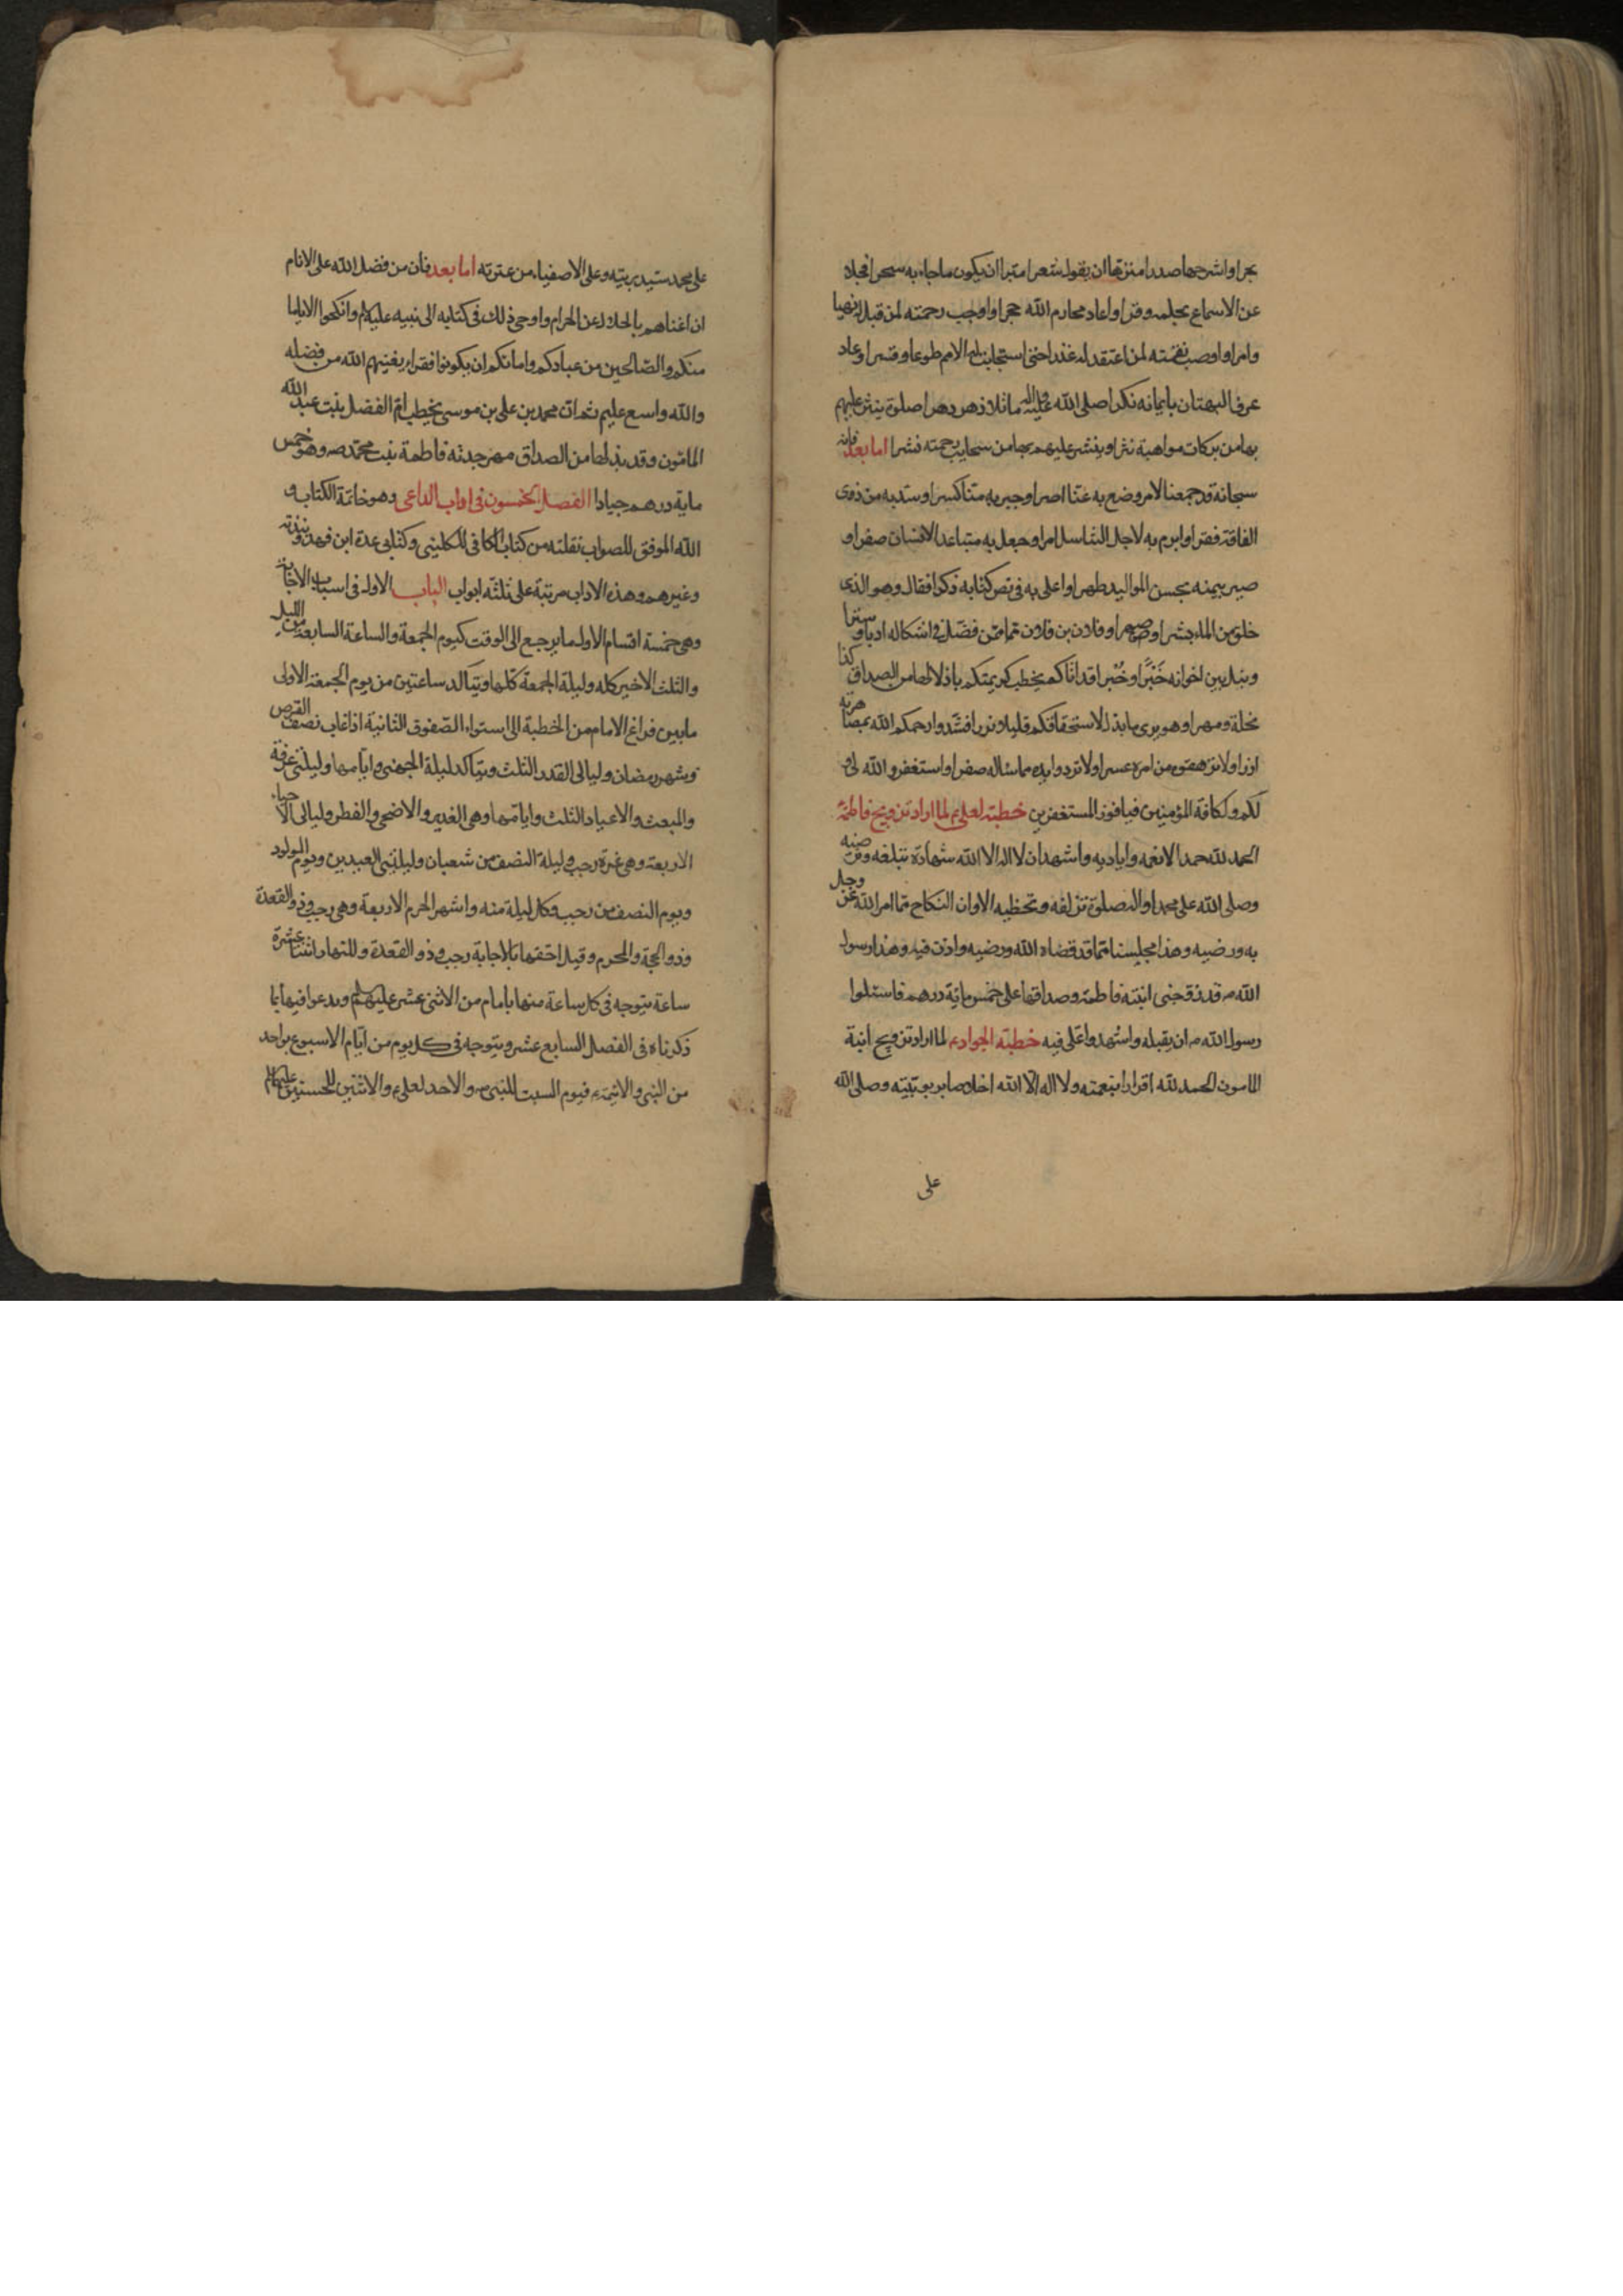 بحرا واشرحها صدرا منزها ان يقول شعرا مبرا ان يكون ما جاء به سحرا فجلا
عن الاسماع بحكمه وقرا واعاد محارم الله حجرا واوجب رحمته لمن قبل نهيا
وامرا واوصب نقمته لمن اعتقد له غدرا حتى استجابت له الامم طوعا وقسرا وعاد
عرف البهتان بايمانه نكرا صلى الله عليه واله ما تلا دهر دهرا صلوة ينثر عليهم
بها من بركات مواهبه نثرا وينشر عليهم بها من سحايب رحمته نشرا اما بعد فانه
سبحانه قد جمعنا لامر وضع به عنا اصرا وجبر به منا كسرا وسد به من ذوى
الفاقة فقرا وابرم به لاجل التناسل امرا وجعل به متباعد الانسان صهرا و
صير بيمنه محسن المواليد طهرا واعلى به فى نص كتابه ذكرا فقال وهو الذى
خلق من الماء بشرا وصهرا وفلان بن فلان ممن فضل فى اشكاله ادبا وسترا
ونبل بين اخوانه خَبَرًا وخُبْرا قد اتاكم يخطب كريمتكم باذلا لها من الصداق كذا
نحلة ومهرا وهو يرى ما بذل لاستحقاقكم قليلا ونزرا فشدوا رحمكم الله بمصاهرته
ازرا ولا ترهقوه من امره عسرا ولا تردوا يده مما ساله صفرا واستغفروا الله لى و
لكم ولكافة المؤمنين فيا فوز المستغفرين خطبة لعلى ع لما اراد تزويج فاطمة
الحمد لله حمدا لانعمه واياديه واشهد ان لا اله الا الله شهادة تبلغه وترضيه
وصلى الله على محمد واله صلوة تزلفه وتحظيه الا وان النكاح مما امر الله عز وجل
به ورضيه وهذا مجلسنا مما قد قضاه الله ورضيه واذن فيه وهذا رسول
الله ص قد زوجنى ابنته فاطمة وصداقها على خمس مائة درهم فاسئلوا
رسول الله ص ان يقبله واشهدوا على فيه خطبة الجواد ع لما اراد تزويج ابنة
المامون الحمد لله اقرارا بنعمته ولا اله الا الله اخلاصا بربوبيته وصلى الله
على
على محمد سيد بريته وعلى الاصفياء من عترته اما بعد فان من فضل الله على الانام
ان اغناهم بالحلال عن الحرام واوحى ذلك فى كتابه الى نبيه عليه السلم وانكحوا الايامى
منكم والصالحين من عبادكم وامائكم ان يكونوا فقراء يغنيهم الله من فضله
والله واسع عليم ثم ان محمد بن على بن موسى يخطب ام الفضل بنت عبد الله
المامون وقد بذل لها من الصداق مهر جدته فاطمة بنت محمد ص وهو خمس
ماية درهم جيادا الفصل الخمسون فى اداب الداعى وهو خاتمة الكتاب و
الله الموفق للصواب نقلته من كتاب الكافى للكلينى وكتابى عدة ابن فهد ونبذته
وغيرهم وهذه الاداب مرتبة على ثلثة ابواب الباب الاول فى اسباب الاجابة
وهى خمسة اقسام الاول ما يرجع الى الوقت كيوم الجمعة والساعة السابعة من الليل
والثلث الاخير كله وليلة الجمعة كلها ويتاكد ساعتين من يوم الجمعة الاولى
ما بين فراغ الامام من الخطبة الى استواء الصفوف الثانية اذا غاب نصف القرص
وشهر رمضان وليالى القدر الثلث ويتاكد ليلة الجهنى وايامها وليلتى عرفة
والمبعث والاعياد الثلث وايامها وهى الغدير والاضحى والفطر وليالى الاحياء
الاربعة وهى غرة رجب وليلة النصف من شعبان وليلتى العيدين ويوم المولود
ويوم النصف من رجب وكل ليلة منه واشهر الحرم الاربعة وهى رجب وذو القعدة
وذو الحجة والمحرم وقيل احقها بالاجابة رجب وذو القعدة وللنهار اثنتا عشرة
ساعة يتوجه فى كل ساعة منها بامام من الاثنى عشر عليهم السلم ويدعوا فيها بما
ذكرناه فى الفصل السابع عشر ويتوجه فى كل يوم من ايام الاسبوع بواحد
من النبى والائمة ع فيوم السبت للنبى ص والاحد لعلى ع والاثنين للحسنين عليهما السلم